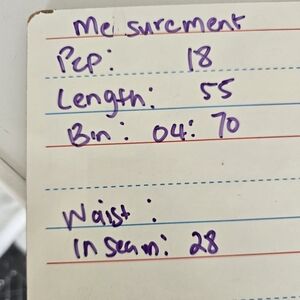 Mesurcment
Pep: 18
Length: 55
Bin: 04: 70
Waist:
Inseam: 28